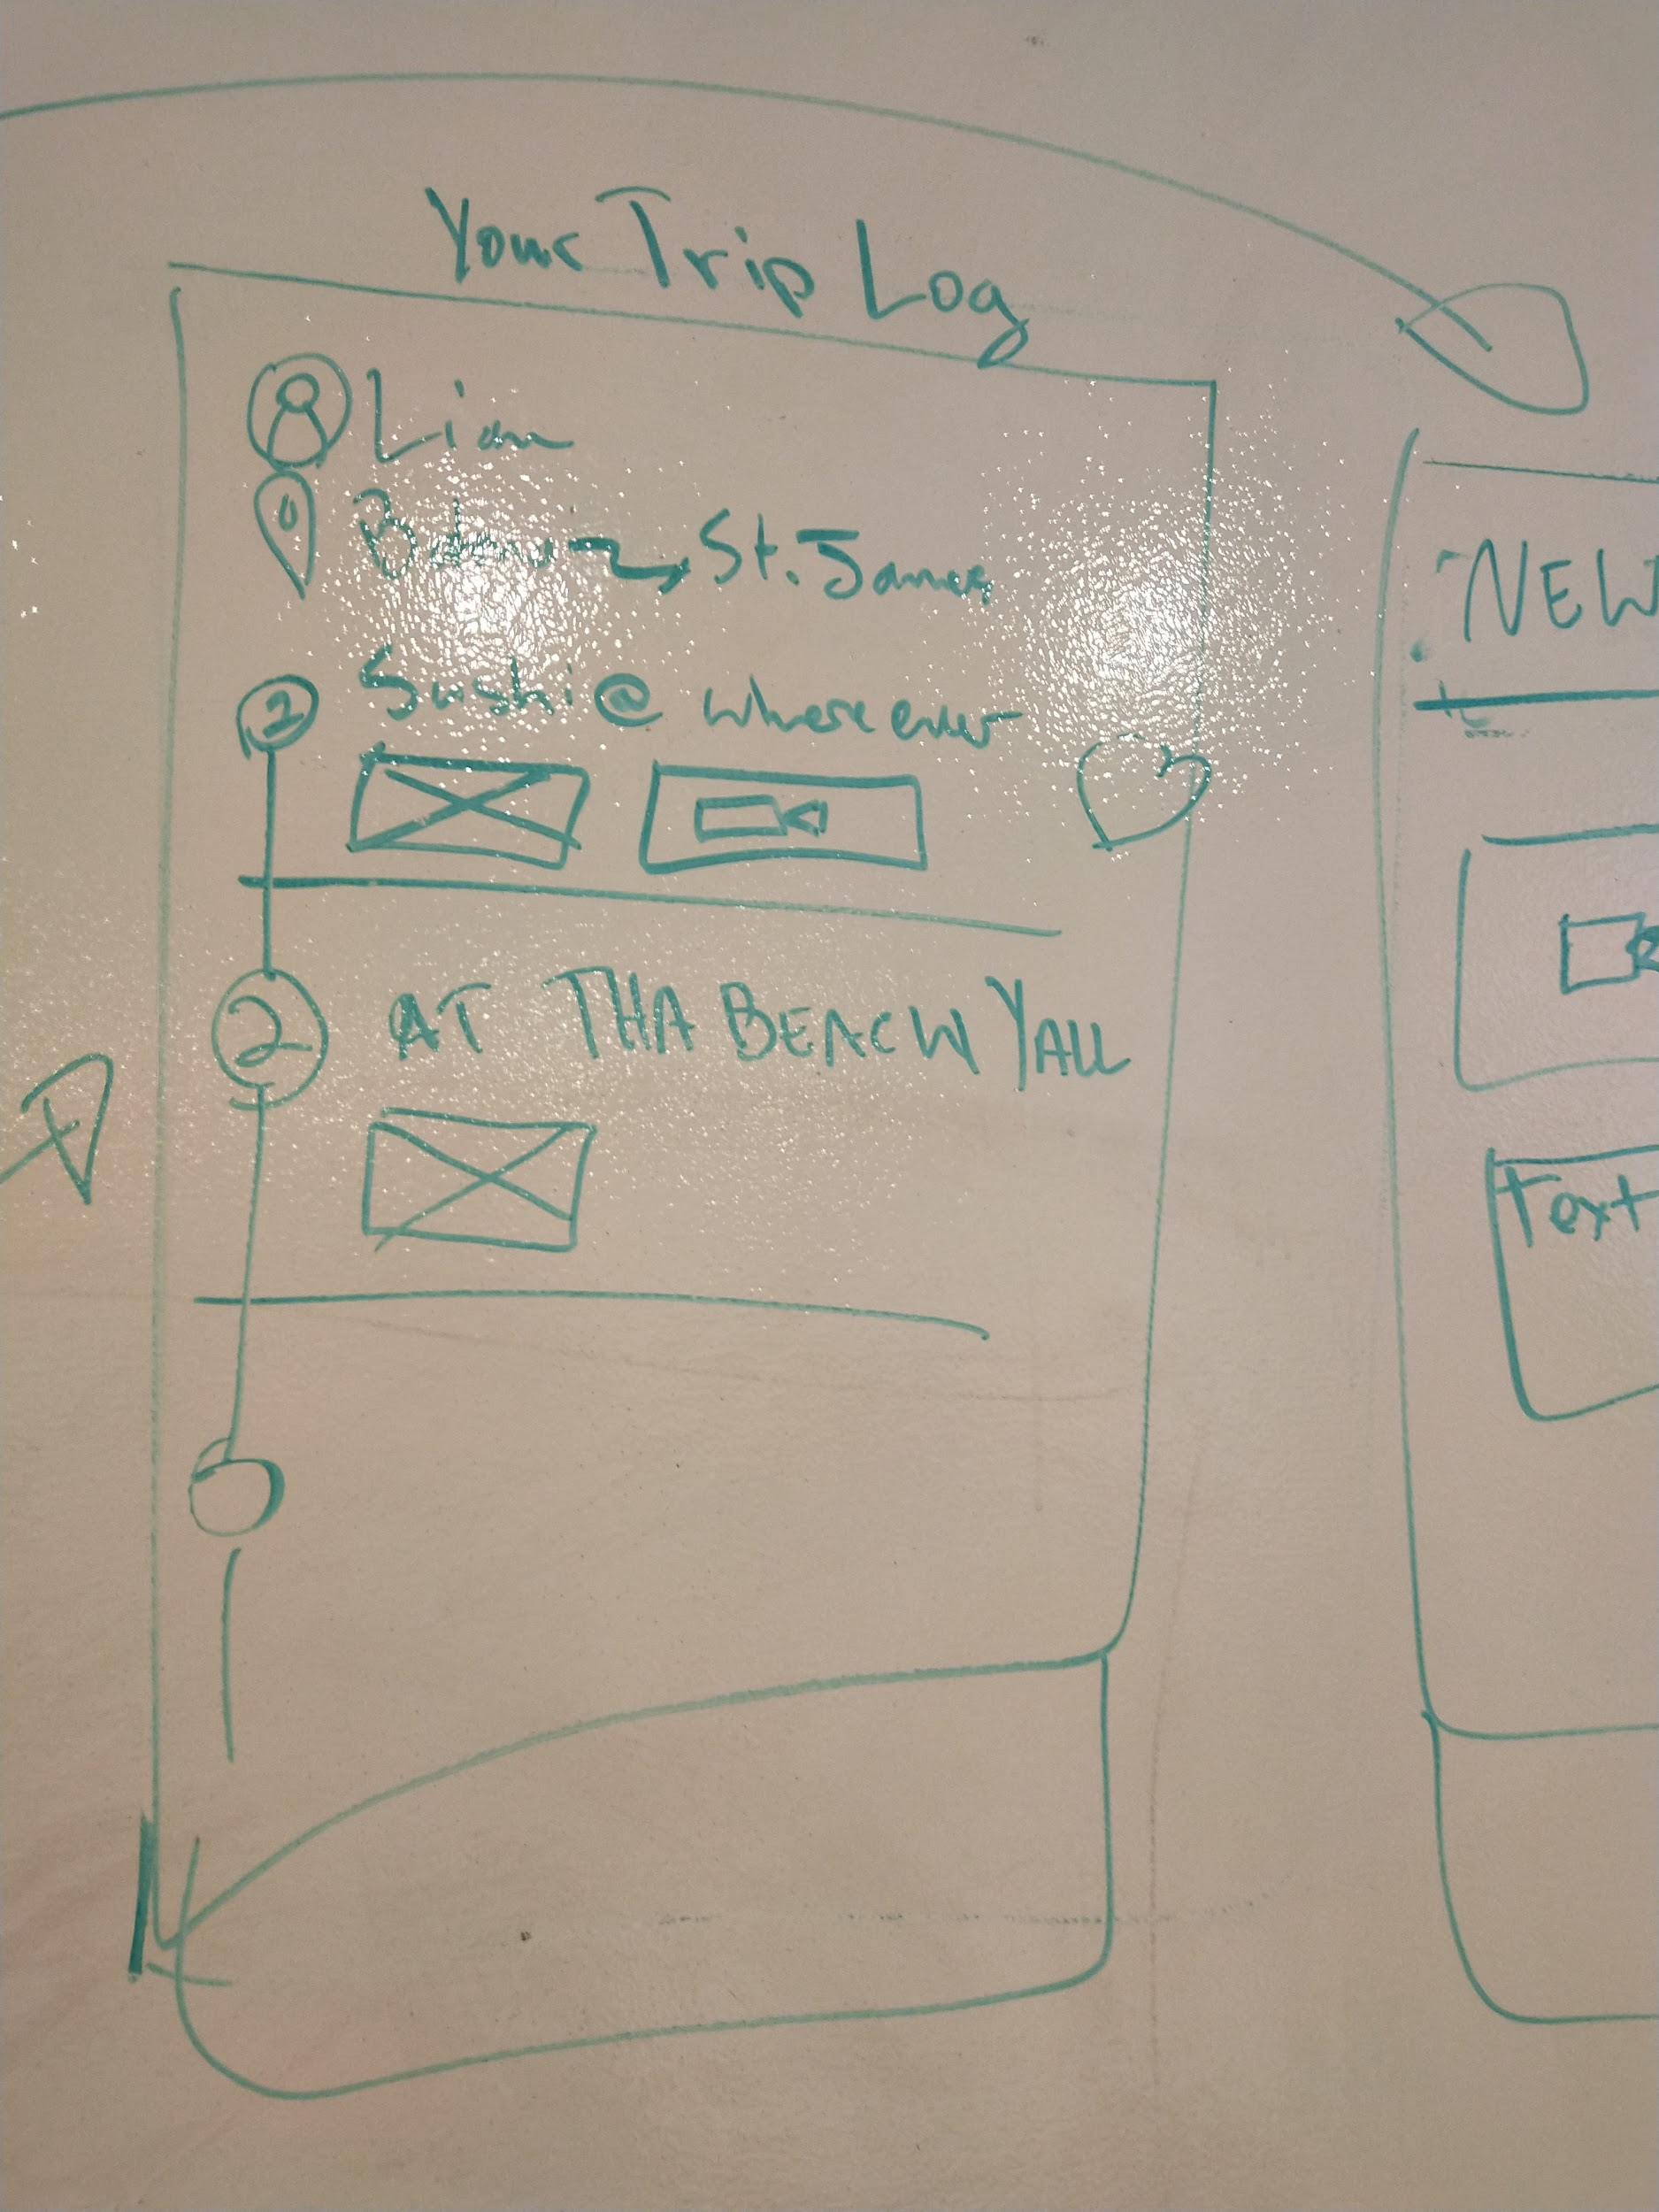 Your Trip Log
Liam
St. James
1 Sushi @ where ever
2 AT THA BEACH YALL
NEW
Text